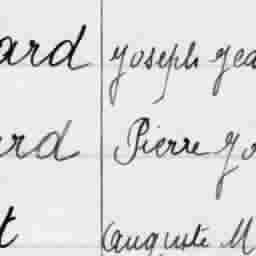 ard Joseph Jea
ard Pierre Jo
t (auguste M